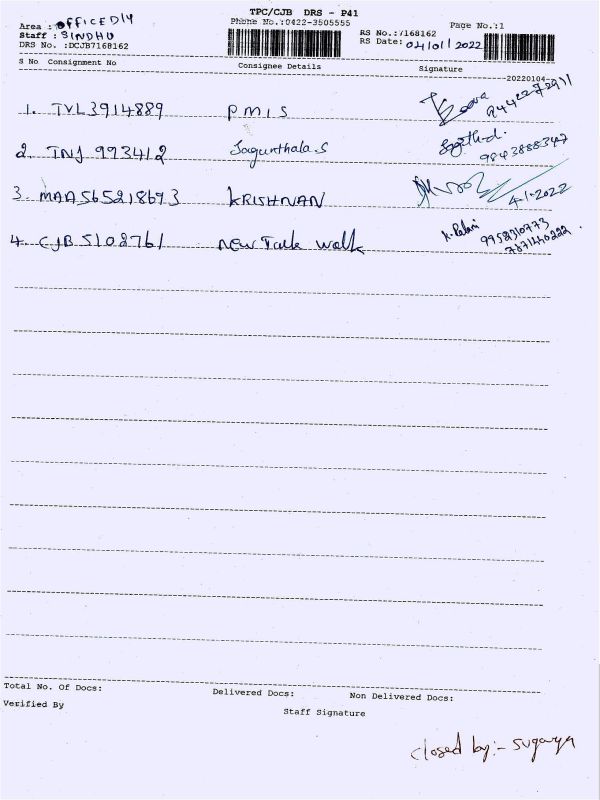 TPC/CJB DRS - P41
Area : OFFICEDLY Phone No.:0422-3505555 Page No.:1
Staff : SINDHU RS No.:7168162
DRS No. :DCJB7168162 RS Date: 04/01/2022
S No Consignment No Consignee Details Signature
20220104
1. TVL3914889 P M I S
2. TNJ 993412 Sagunthala.S 9843888347
3 MAA565218693 KRISHNAN 4-1-2022
4. CJB 5108761 new Talk walk K. Palani 9952310773
7871440222
Total No. Of Docs: Delivered Docs: Non Delivered Docs:
Verified By Staff Signature
closed by:- suganya